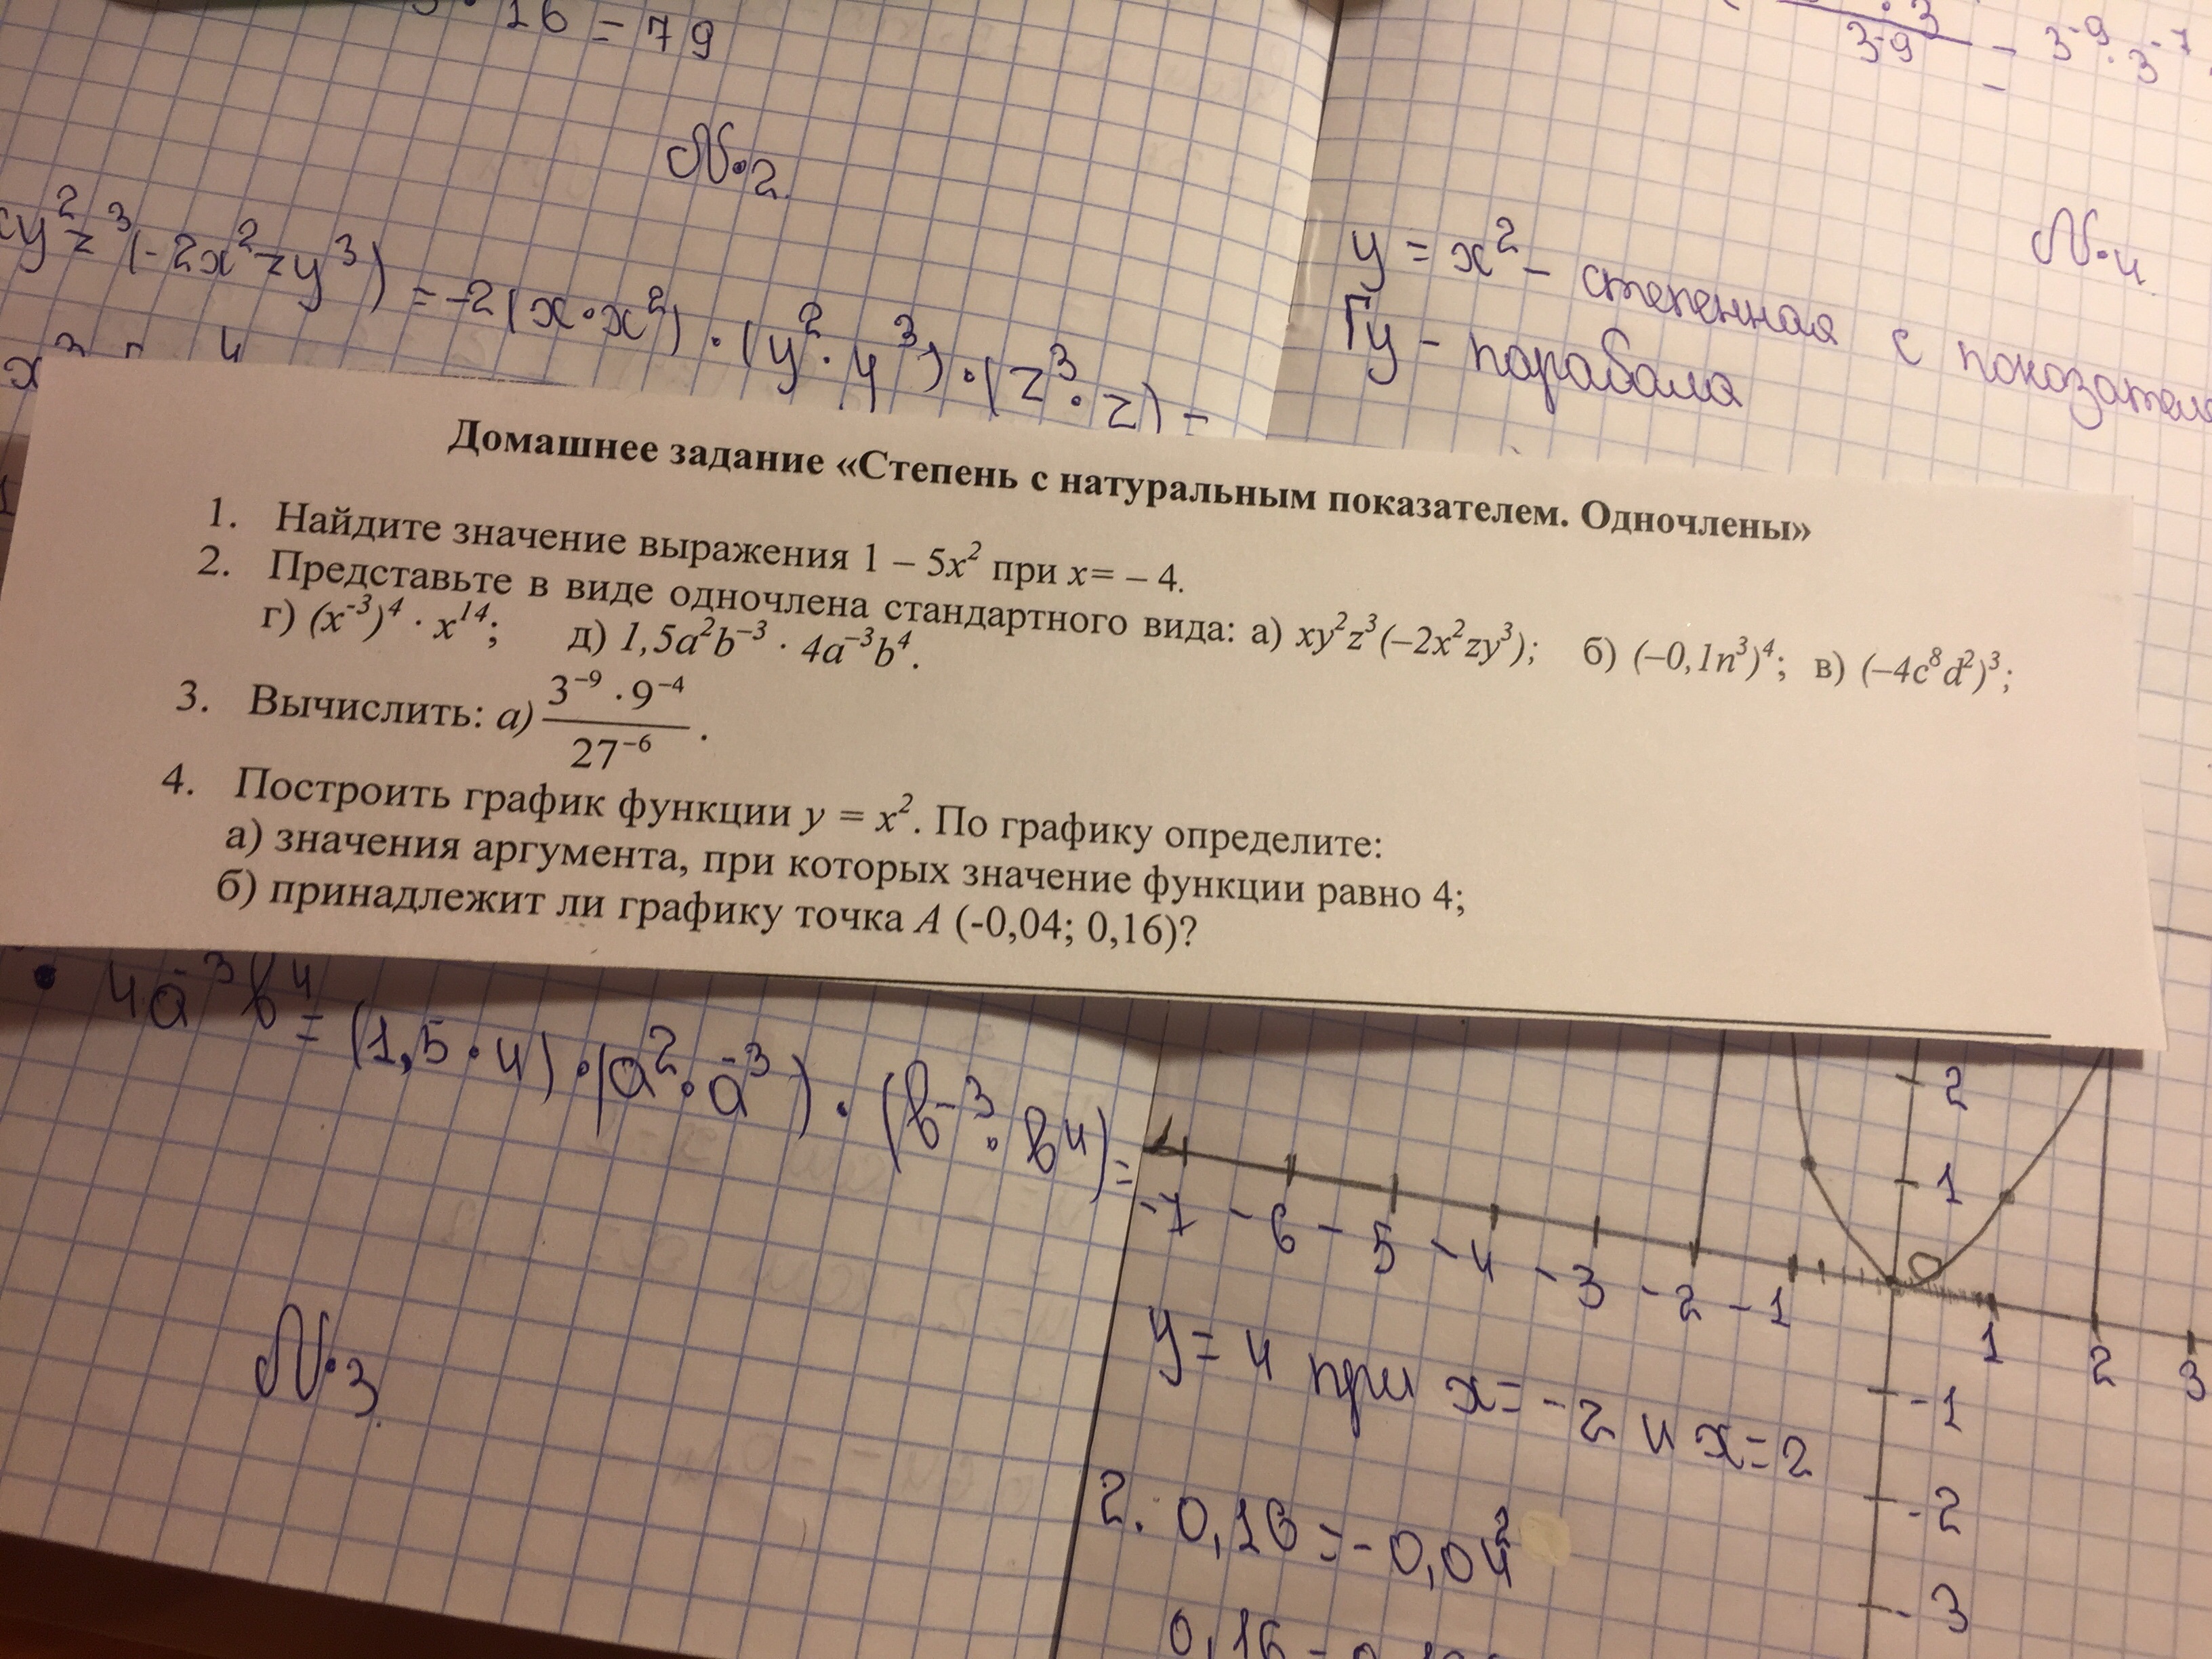 · 16 = 79
3⁻⁹
= 3⁻⁹ · 3⁻⁷
№2.
xy²z³(-2x²zy³) = -2(x·x²)·(y²·y³)·(z³·z) =
№4.
y = x² - степенная с показателе
Гу - парабола
Домашнее задание «Степень с натуральным показателем. Одночлены»
1. Найдите значение выражения 1 – 5x² при x= – 4.
2. Представьте в виде одночлена стандартного вида: а) xy²z³(–2x²zy³); б) (–0,1n³)⁴; в) (–4c⁸d²)³;
г) (x⁻³)⁴ · x¹⁴; д) 1,5a²b⁻³ · 4a⁻³b⁴.
3. Вычислить: а) (3⁻⁹ · 9⁻⁴)/27⁻⁶.
4. Построить график функции y = x². По графику определите:
а) значения аргумента, при которых значение функции равно 4;
б) принадлежит ли графику точка А (-0,04; 0,16)?
· 4a⁻³b⁴ = (1,5·4)·(a²·a⁻³)·(b⁻³·b⁴) =
№3.
2
1
0
-7 -6 -5 -4 -3 -2 -1 1 2 3
-1
-2
-3
y = 4 при x = -2 и x = 2
2. 0,16 = -0,04²